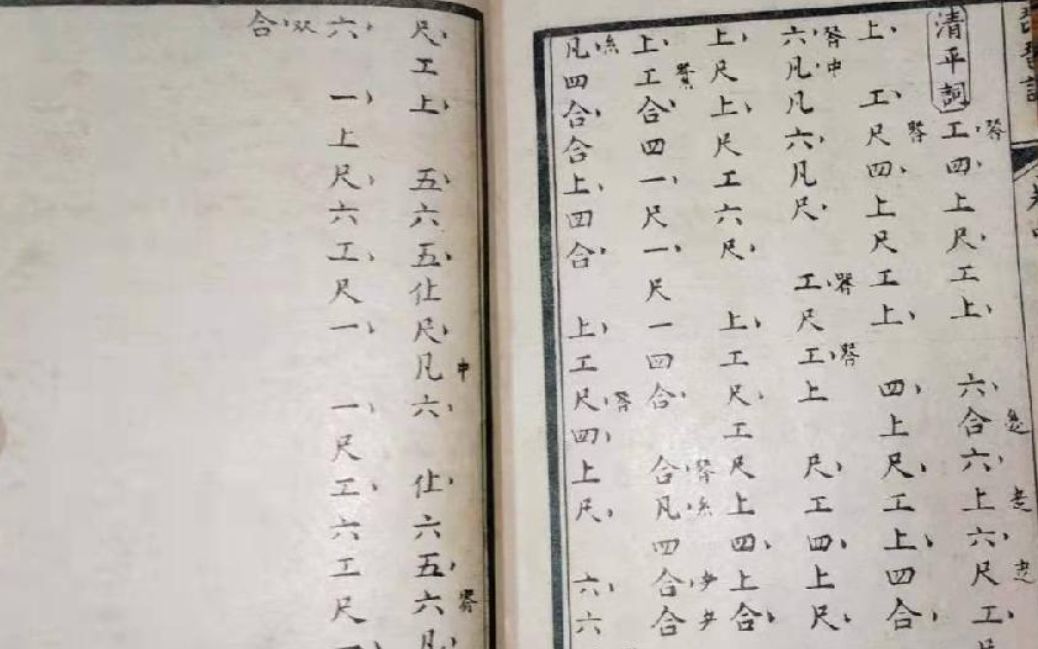 琵琶譜
清平詞 工四上尺工上 六合六上六尺工尺
上工尺四上尺工上 四上尺工上四合
六凡中凡六凡尺 工尺工上 尺工四上尺
上尺上尺工六尺 上工尺工尺上四上合
上工合四一尺一尺一四合 合凡四合合
凡四合合上四合 上工尺四上尺 六六
尺工上 五六五仩尺凡中六 仩六五六凡
六双一上尺六工尺一 一尺工六工尺一
合